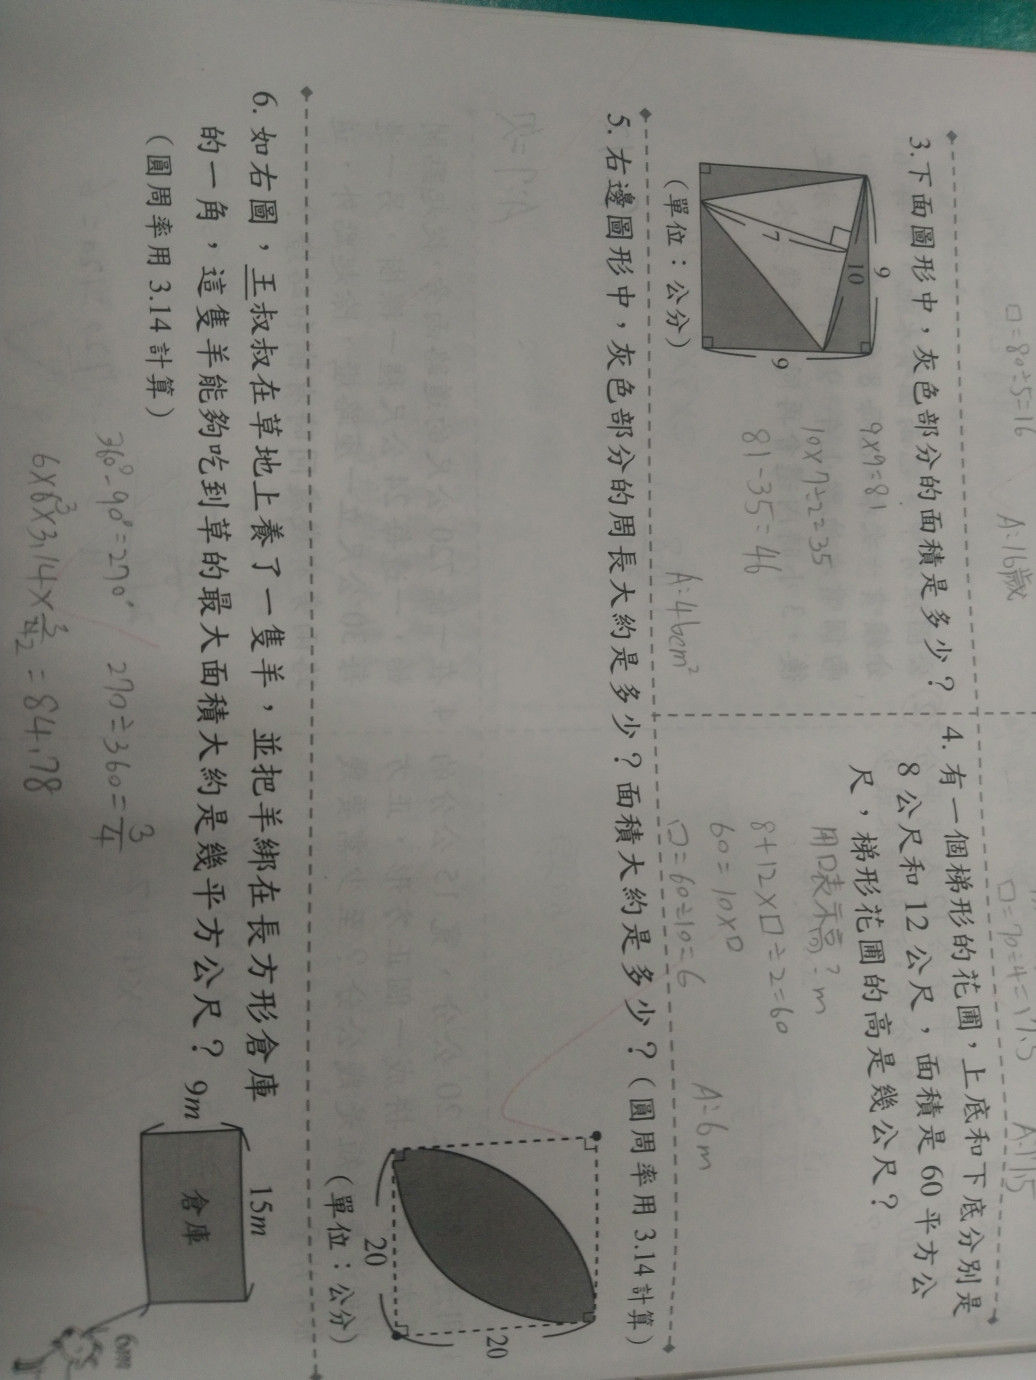 □=80÷5=16
A:16歲
A:17.5
3.下面圖形中，灰色部分的面積是多少？
9
10
7
9
(單位：公分)
9×9=81
10×7÷2=35
81-35=46
A:46cm²
4. 有一個梯形的花圃，上底和下底分別是
8 公尺和 12 公尺，面積是 60 平方公
尺，梯形花圃的高是幾公尺？
用□表示高?m
8+12×□÷2=60
60=10×□
□=60÷10=6
A:6m
5. 右邊圖形中，灰色部分的周長大約是多少？面積大約是多少？(圓周率用 3.14 計算)
20
20
(單位：公分)
6. 如右圖，王叔叔在草地上養了一隻羊，並把羊綁在長方形倉庫
的一角，這隻羊能夠吃到草的最大面積大約是幾平方公尺？
(圓周率用 3.14 計算)
15m
9m
倉庫
6m
360°-90°=270°
270÷360=3/4
=84.78